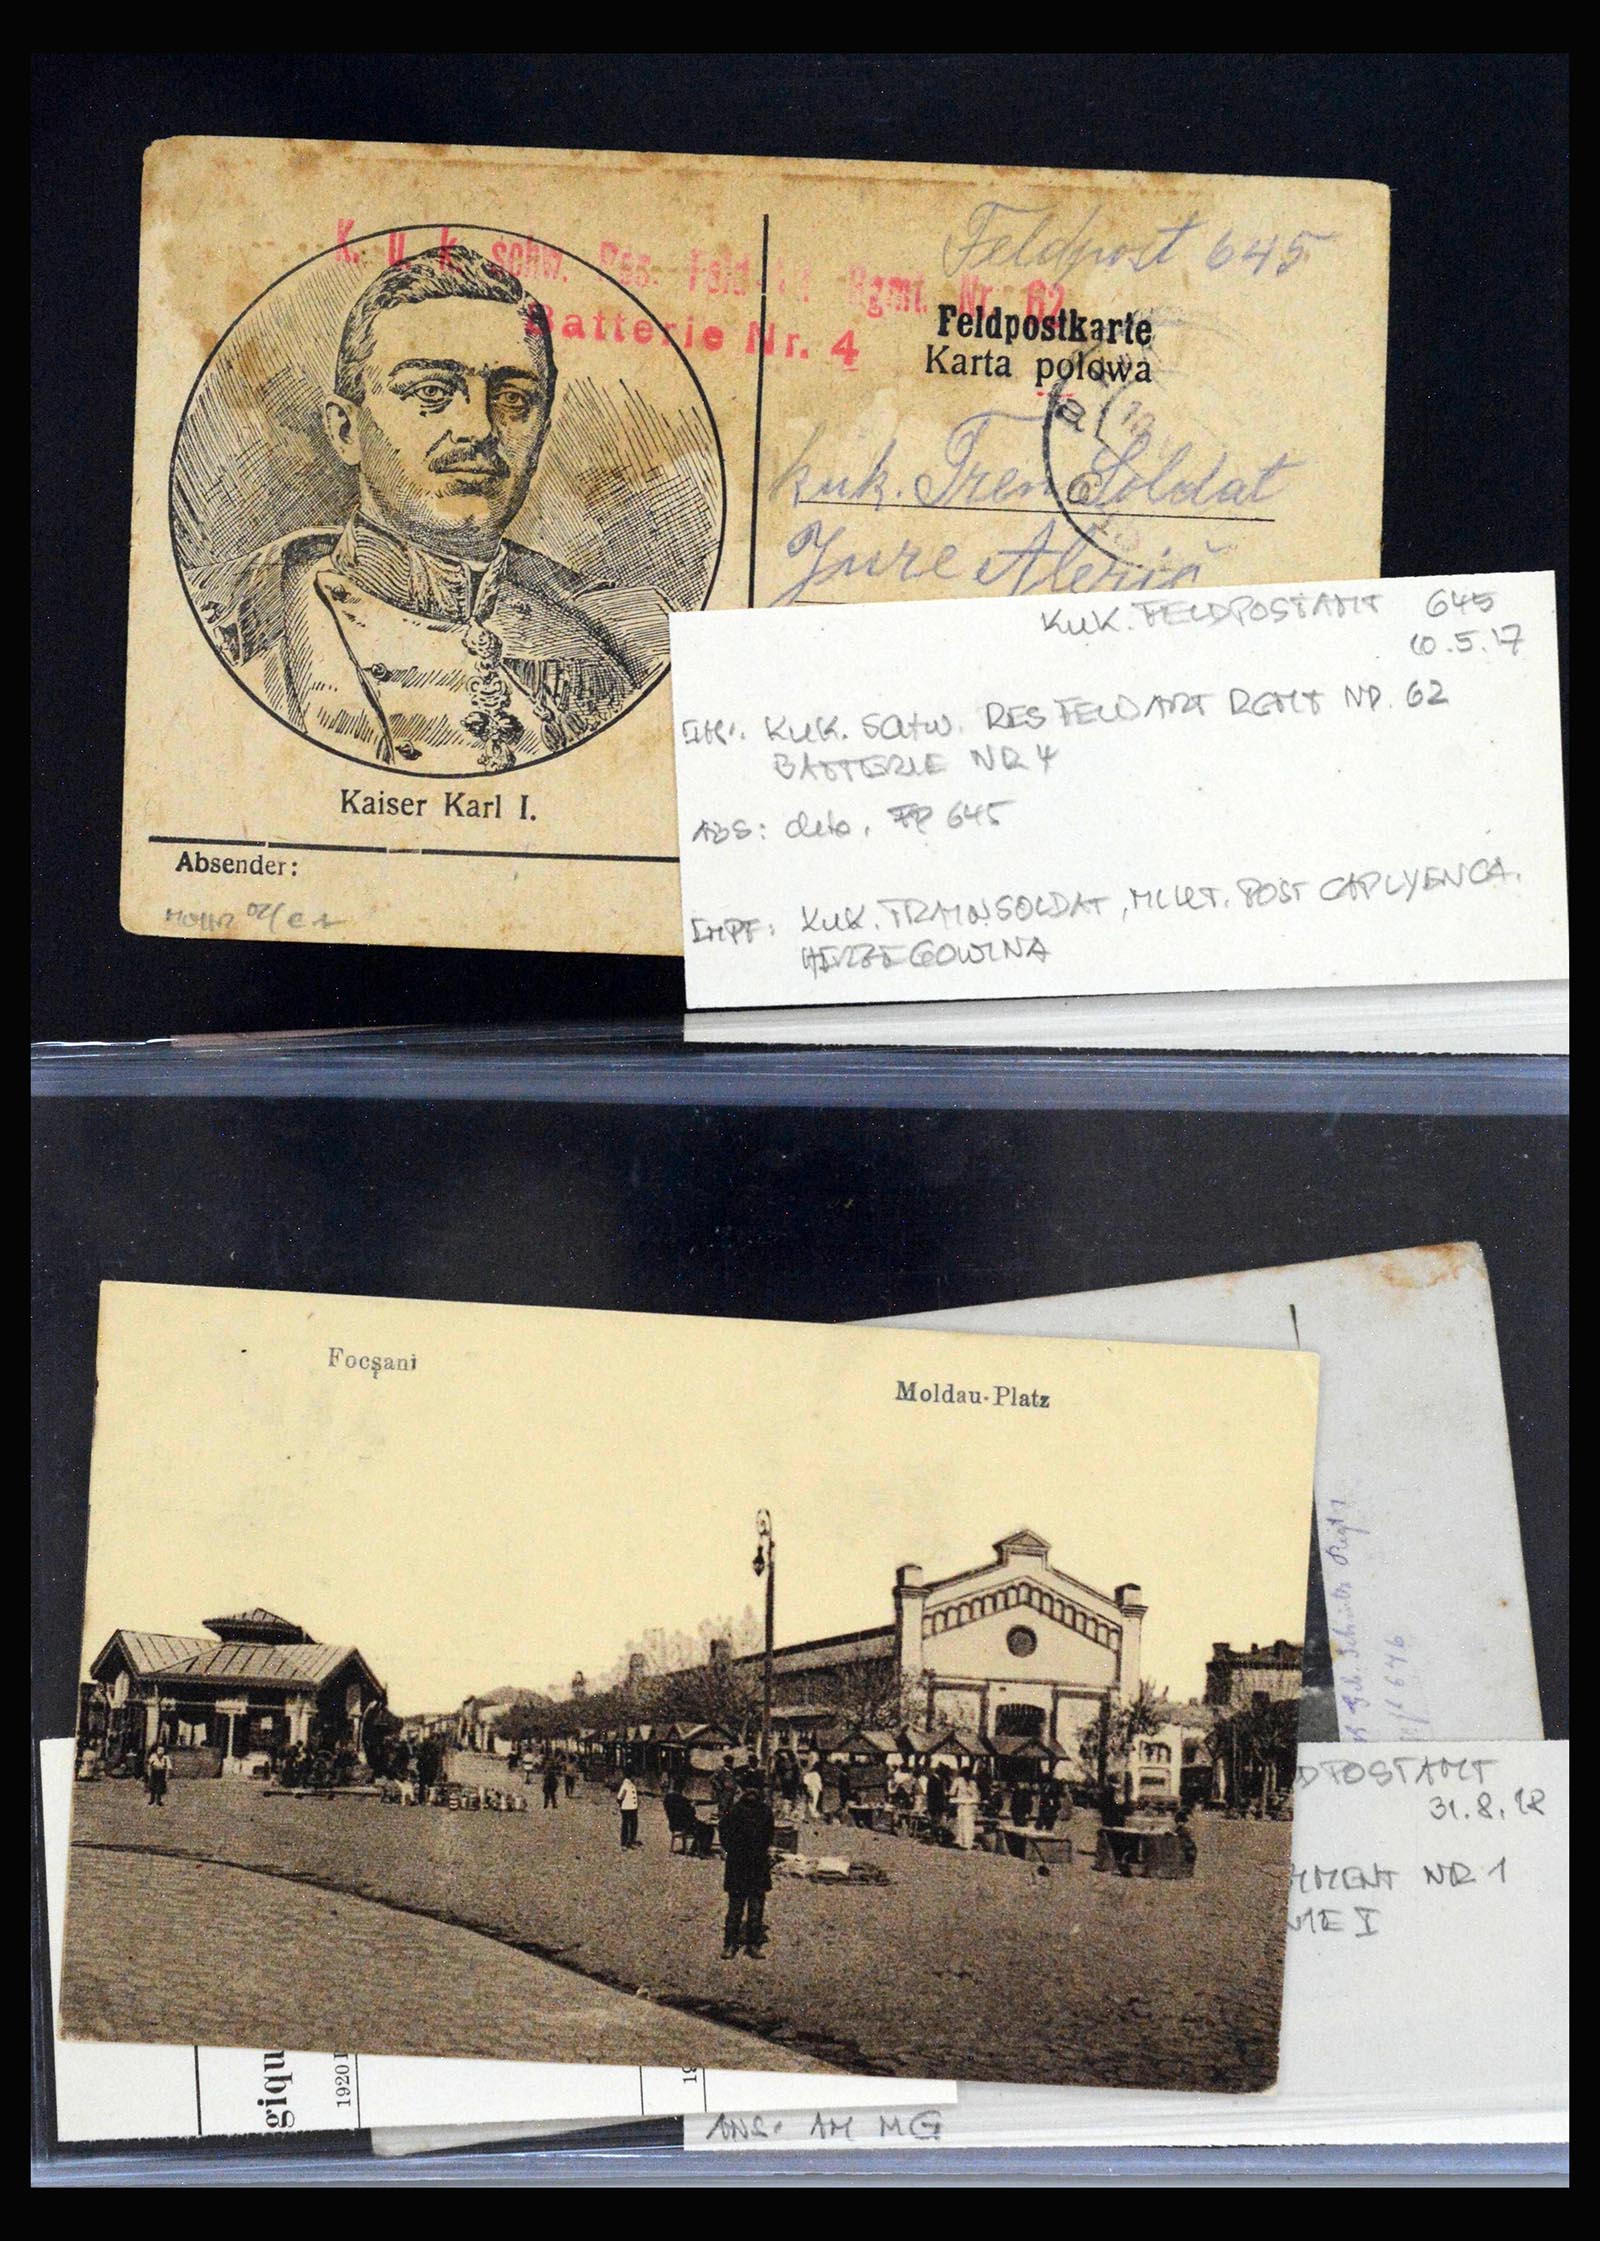 K. u. k. schw. Res. Feld Art Rgmt. Nr. 62
Batterie Nr. 4
Feldpost 645
Feldpostkarte
Karta polowa
kuk. Tren Soldat
Jure Alerić
Kaiser Karl I.
Absender:
KUK. FELDPOSTAMT 645
10.5.17
KUK. SCHW. RES FELD ART RGMT NR. 62
BATTERIE NR 4
ABS: deto. FP 645
EMPF: KUK. TRAINSOLDAT, MILIT. POST CAPLYENCA.
HERZEGOWINA
Focşani
Moldau-Platz
DPOSTAMT
31.8.18
MENT NR 1
NIE I
giqu
1920
19
ANS. AM MG